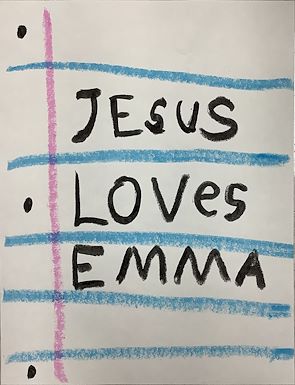 JESUS
LOVes
EMMA